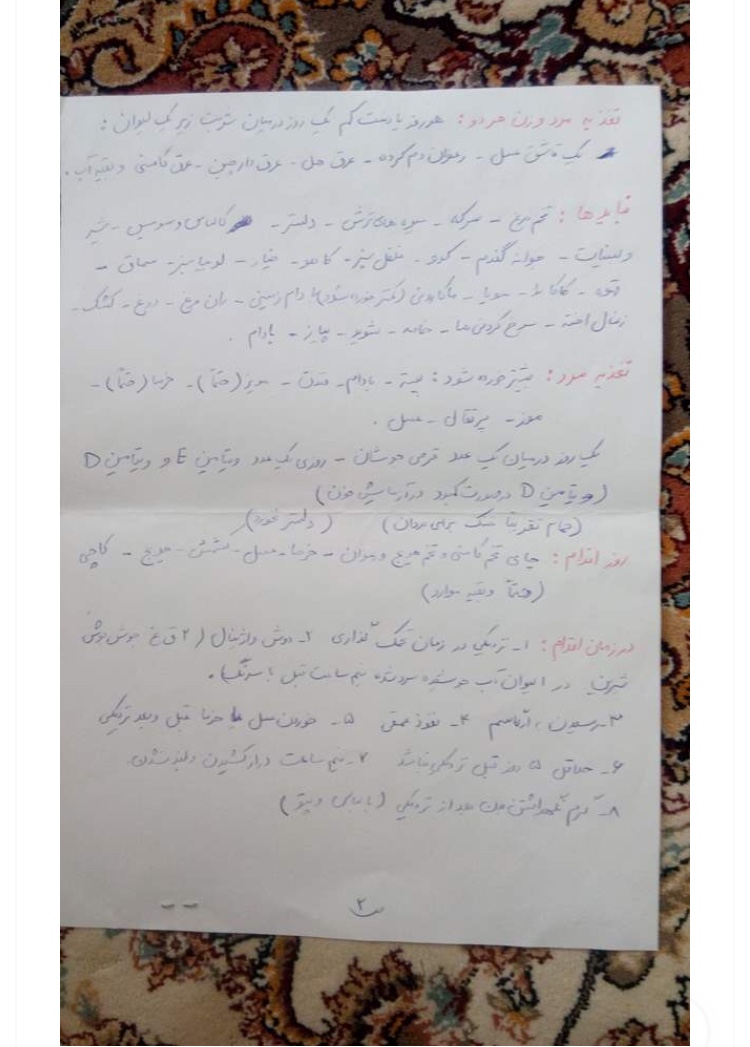 تغذیه مرد و زن هر دو: هر روز یا دست کم یک روز درمیان شربت زیر یک لیوان:
یک قاشق عسل - زعفران دم کرده - عرق هل - عرق دارچین - عرق کاسنی و بقیه آب.
نبایدها: تخم مرغ - سرکه - میوه های ترش - دلستر - کالباس و سوسیس - شیر
و لبنیات - جوانه گندم - کدو - فلفل سبز - کاهو - خیار - لوبیا سبز - سماق -
قهوه - کاکائو - سویا - ماکارونی (کمتر خورده شود) بادام زمینی - ران مرغ - دوغ - کشک -
زغال اخته - سرخ کردنی ها - خامه - شوید - پیاز - بادام.
تغذیه مرد: بیشتر خورده شود: پسته - بادام - فندق - مویز (حتماً) - خرما (حتماً) -
موز - پرتقال - عسل.
یک روز درمیان یک عدد قرص جوشان - روزی یک عدد ویتامین E و ویتامین D
(ویتامین D درصورت کمبود در آزمایش خون)
(حمام تقریبا خنک برای مردان) (دلستر نخورد)
روز اقدام: چای تخم کاسنی و تخم هویج و - خرما - عسل - کشمش - هویج - کاچی
(حتماً و بقیه موارد)
در زمان اقدام: ۱- نزدیکی در زمان تخمک گذاری ۲- دوش واژینال (۲ ق غ جوش
شیرین در ۱ لیوان آب جوشیده سرد شده نیم ساعت قبل با سرنگ).
۳- رسیدن به ارگاسم ۴- نفوذ عمقی ۵- خوردن عسل یا خرما قبل و بعد نزدیکی
۶- حداقل ۵ روز قبل نزدیکی نباشد ۷- نیم ساعت دراز کشیدن و بلند نشدن
۸- گرم نگهداشتن بدن بعد از نزدیکی (با لباس و پتو)
ص ۲